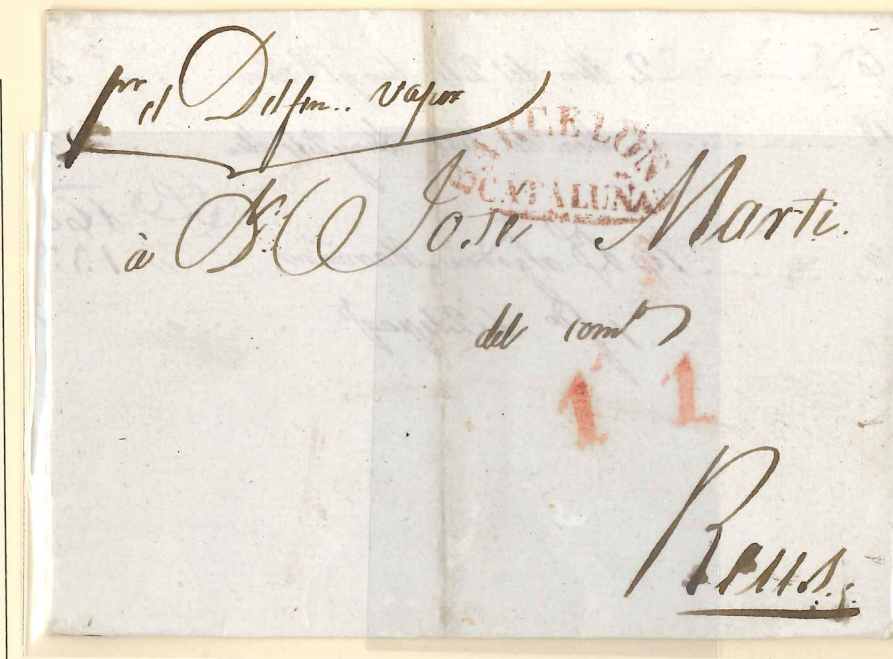 por el Delfin.. vapor
BARCELONA
CATALUÑA
à Dn. Jose Marti.
del comº
1 1
Reus.